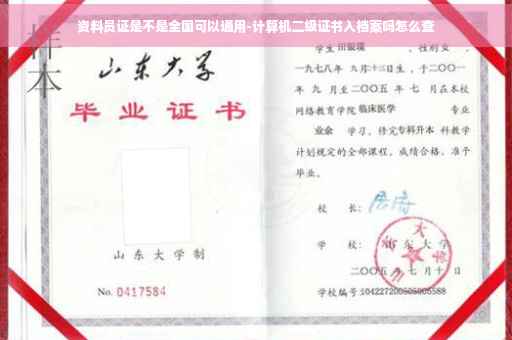 资料员证是不是全国可以通用-计算机二级证书入档案吗怎么查
样本
山东大学
毕业证书
山东大学制
No. 0417584
学生 田银瑞 ，性别女，
一九七八年 九月十二日生，于二〇〇一
年 九 月至二〇〇五 年 七 月在本校
网络教育学院 临床医学 专业
业余 学习，修完专科升本 科教学
计划规定的全部课程，成绩合格，准予
毕业。
校 长：
学 校： 山东大学
二〇〇五年七月十日
学校编号:104227200505005588